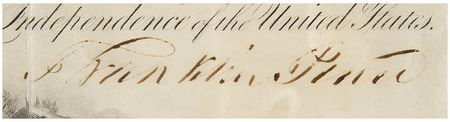 Independence of the United States.
Franklin Pierce